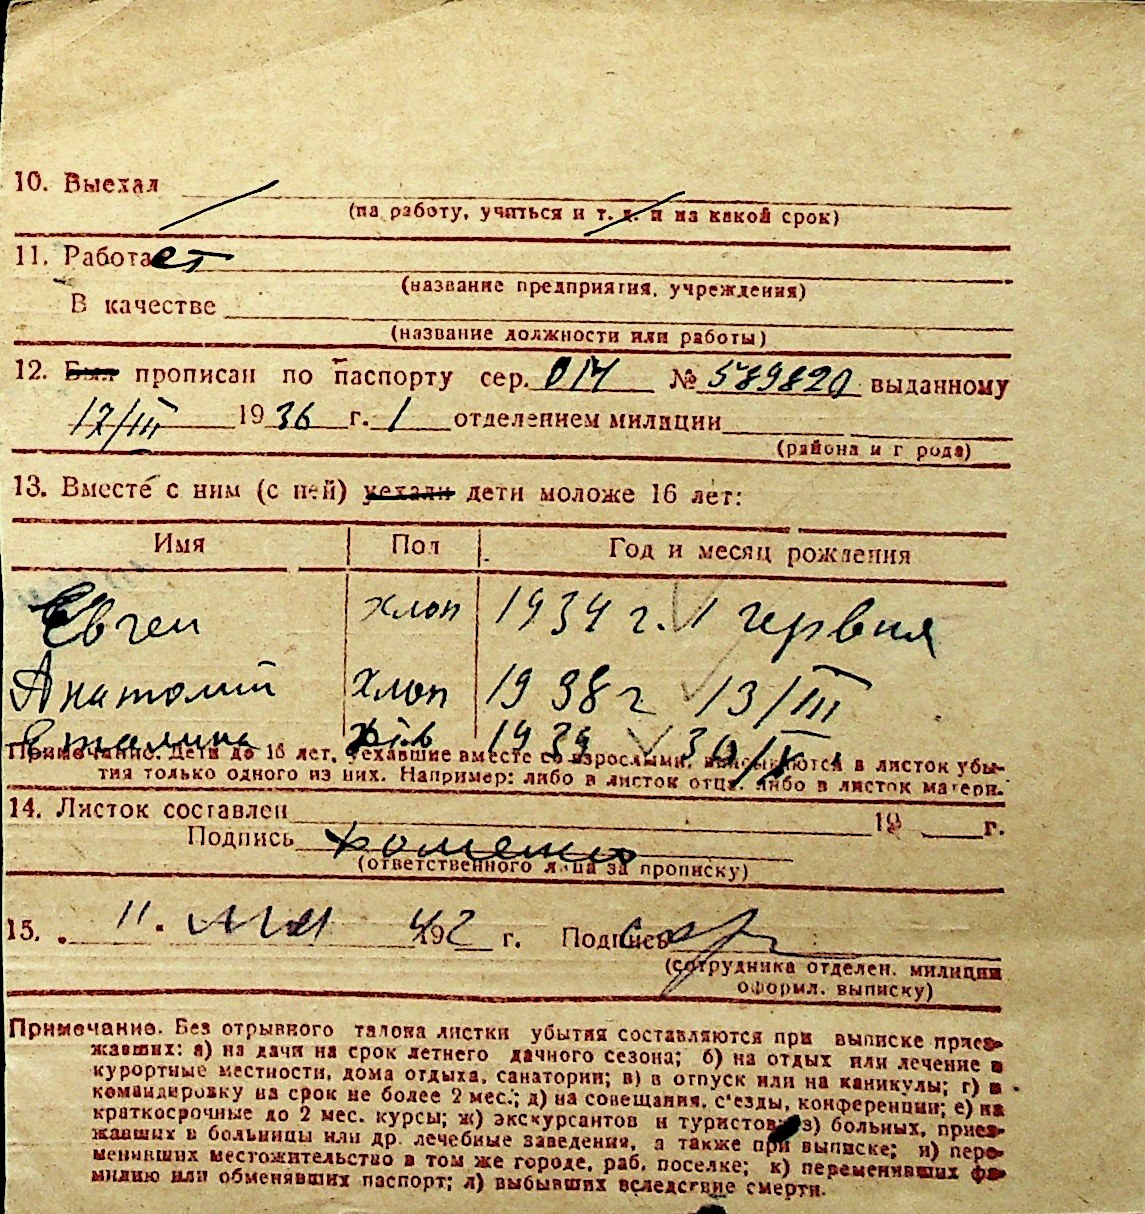 10. Выехал
(на работу, учиться и т. д. и на какой срок)
11. Работает
(название предприятия, учреждения)
В качестве
(название должности или работы)
12. Был прописан по паспорту сер. ОІЧ № 589820 выданному
12/III 1936 г. 1 отделением милиции
(района и г рода)
13. Вместе с ним (с ней) уехали дети моложе 16 лет:
Имя Пол Год и месяц рождения
Євген хлоп 1934 г. 1 червня
Анатолий хлоп 1938 г 13/III
Сталина дів 1939 30/IX
Примечание. Дети до 16 лет, уехавшие вместе со взрослыми, вписываются в листок убы-
тия только одного из них. Например: либо в листок отца, либо в листок матери.
14. Листок составлен 19 г.
Подпись
(ответственного лица за прописку)
15. 11. мая 1942 г. Подпись
(сотрудника отделен. милиции
оформл. выписку)
Примечание. Без отрывного талона листки убытия составляются при выписке приез-
жавших: а) на дачи на срок летнего дачного сезона; б) на отдых или лечение в
курортные местности, дома отдыха, санатории; в) в отпуск или на каникулы; г) в
командировку на срок не более 2 мес.; д) на совещания, с'езды, конференции; е) на
краткосрочные до 2 мес. курсы; ж) экскурсантов и туристов; з) больных, приез-
жавших в больницы или др. лечебные заведения, а также при выписке; и) пере-
менивших местожительство в том же городе, раб. поселке; к) переменивших фа-
милию или обменявших паспорт; л) выбывших вследствие смерти.